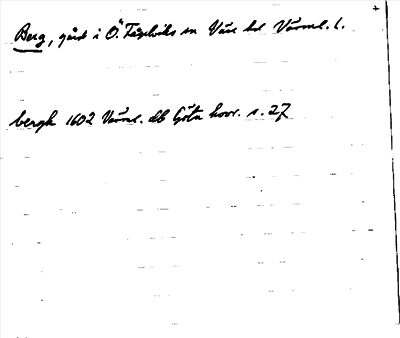 Berg, gård i Ö. Fågelviks sn Väse hd Värml. l.
bergh 1602 Värml. db Göta hovr. s. 27